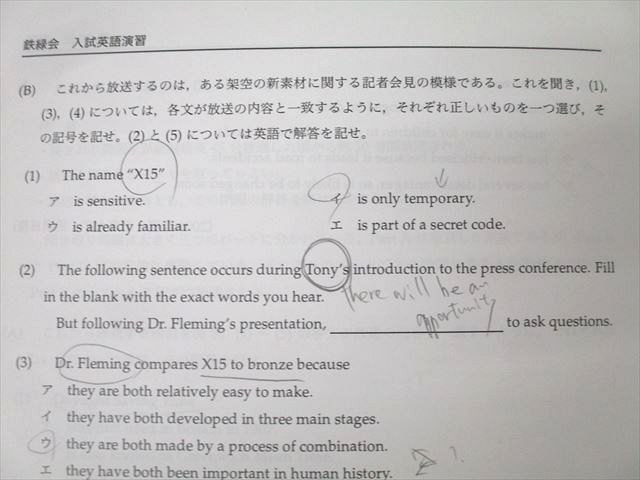 鉄緑会 入試英語演習
(B) これから放送するのは，ある架空の新素材に関する記者会見の模様である。これを聞き，(1),
(3), (4) については，各文が放送の内容と一致するように，それぞれ正しいものを一つ選び，そ
の記号を記せ。(2) と (5) については英語で解答を記せ。
(1) The name “X15”
ア is sensitive.
イ is only temporary.
ウ is already familiar.
エ is part of a secret code.
(2) The following sentence occurs during Tony’s introduction to the press conference. Fill
in the blank with the exact words you hear.
there will be an
opportunity
But following Dr. Fleming’s presentation, ____________ to ask questions.
(3) Dr. Fleming compares X15 to bronze because
ア they are both relatively easy to make.
イ they have both developed in three main stages.
ウ they are both made by a process of combination.
エ they have both been important in human history.